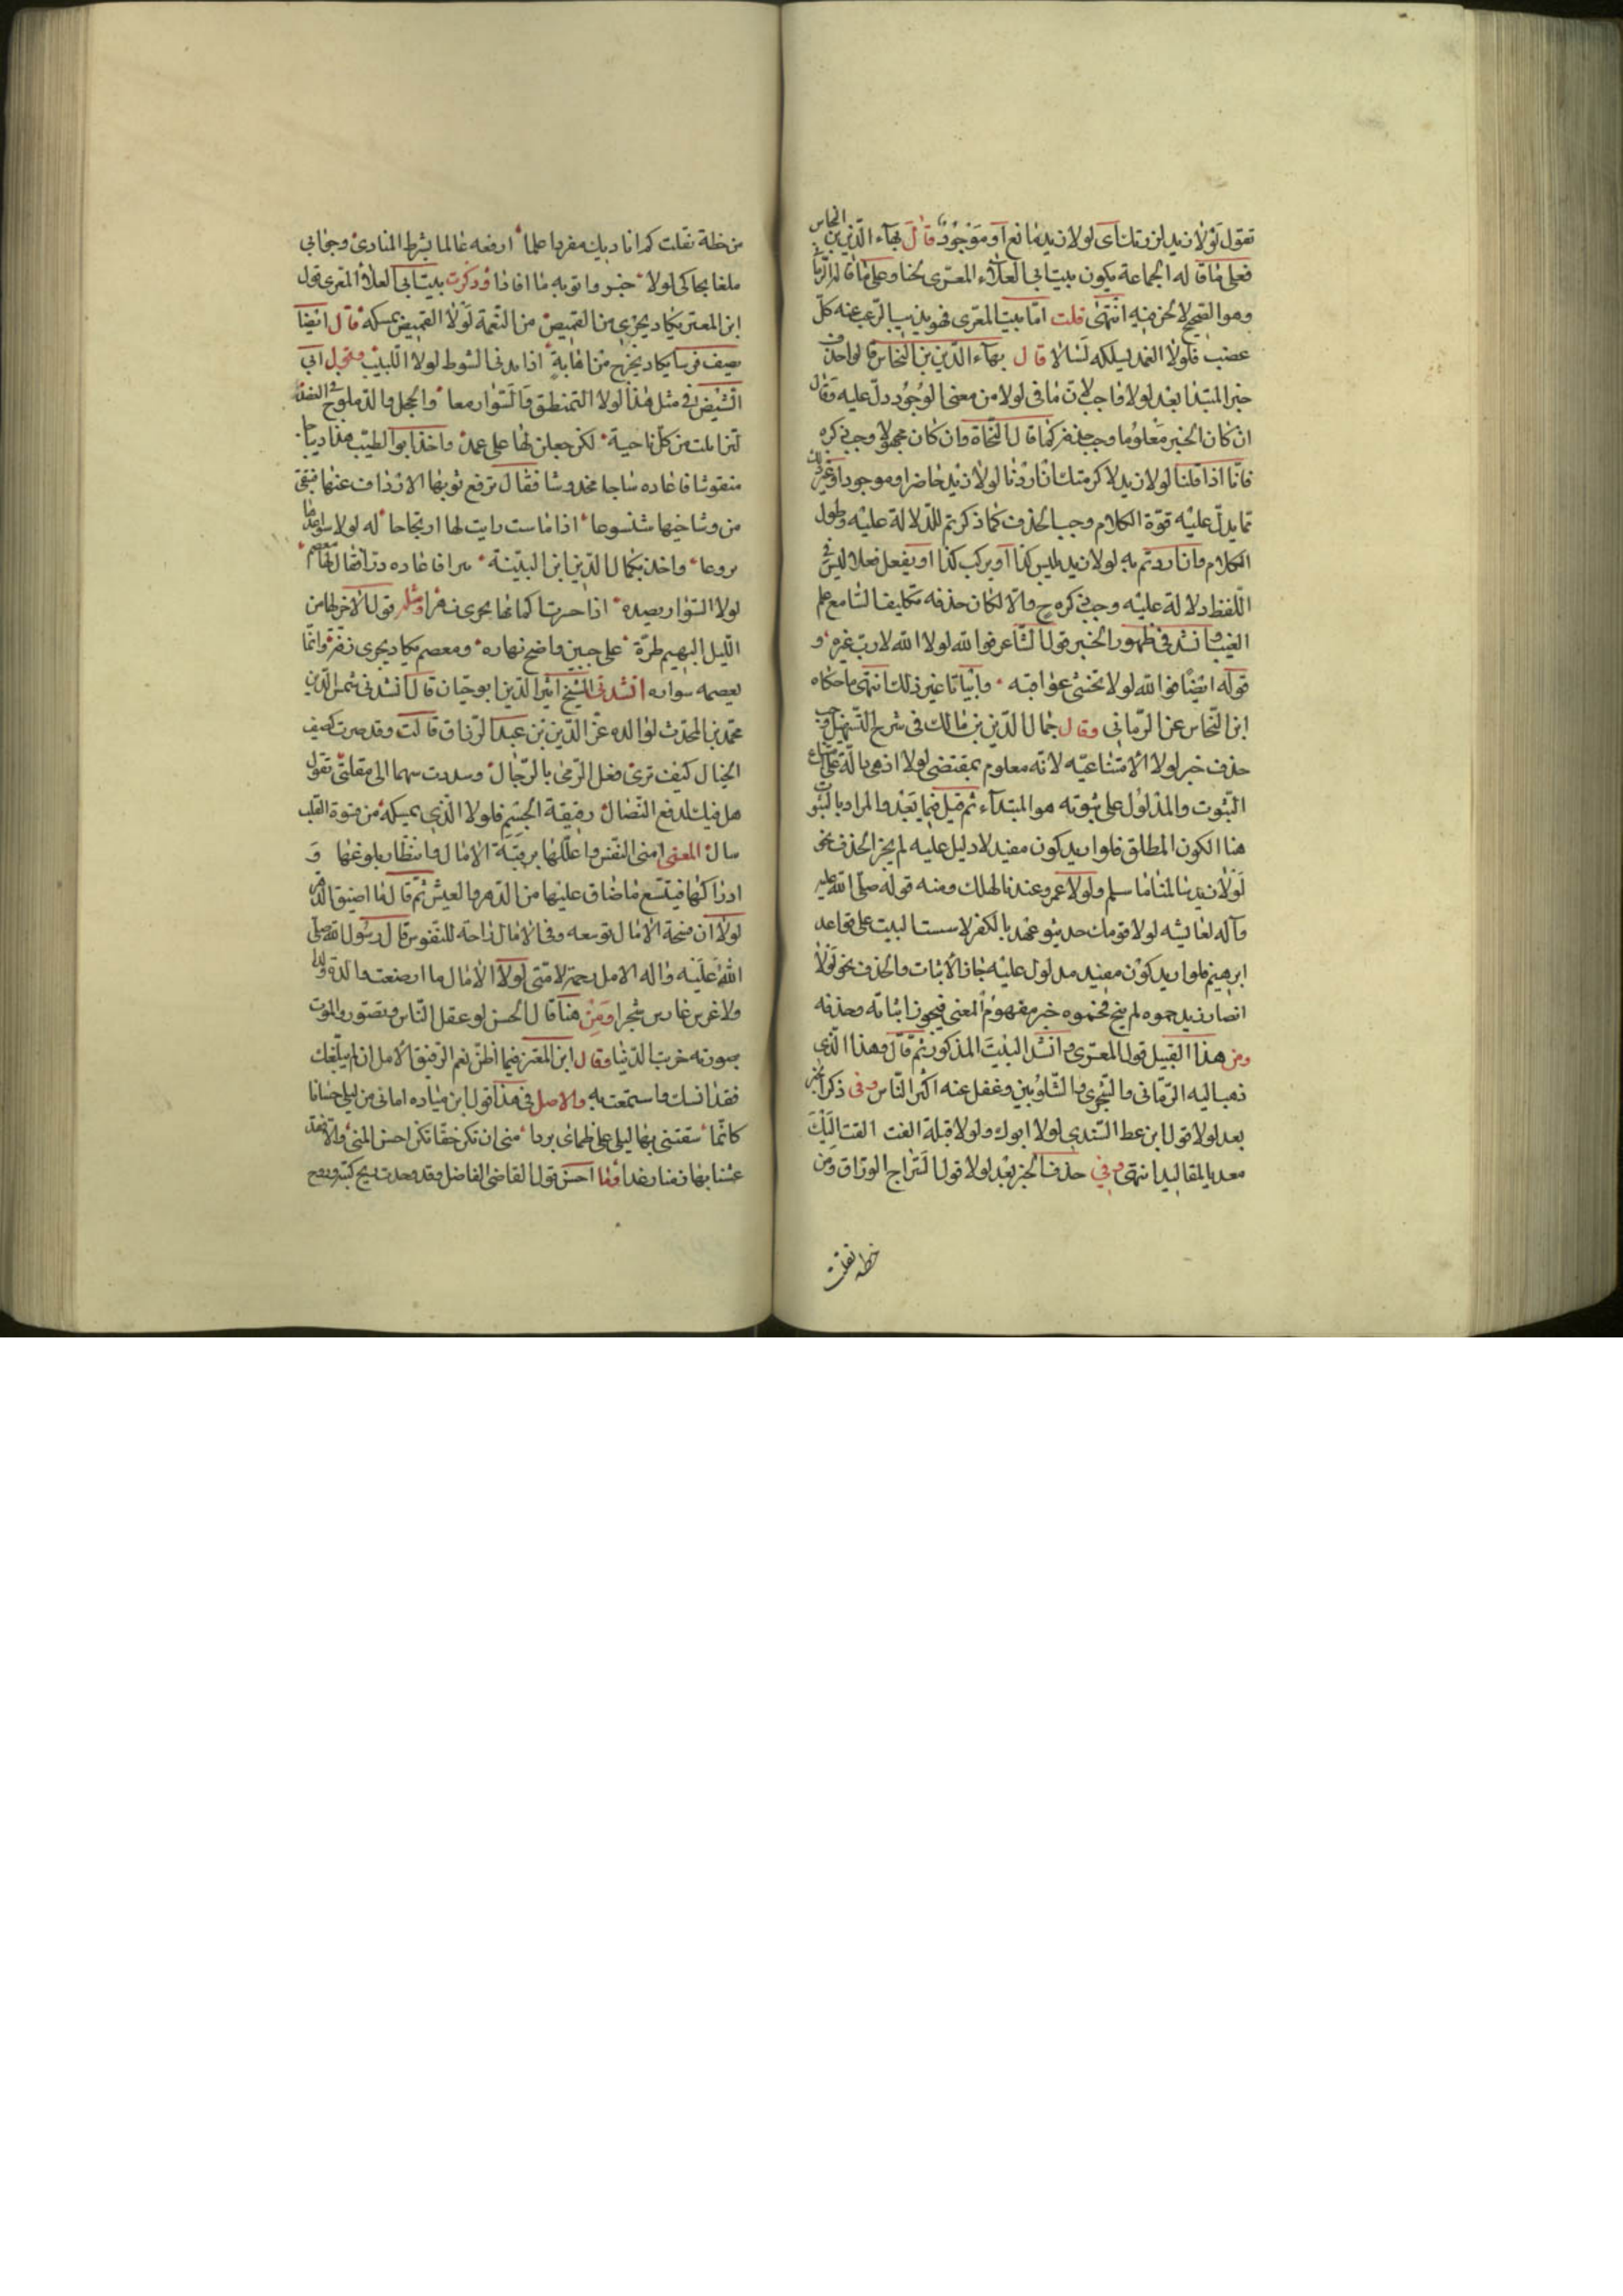 تقول لولا زيد لزرتك اى لولا زيد مانع او موجود قال بهاء الدين بن النحاس
فعلى ما قاله الجماعة يكون بيت ابى العلاء المعرى لحنا وعلى ما قاله الرمانى
وهو الصحيح لا لحن فيه انتهى قلت اما بيت المعرى فهو يذيب الرعب منه كل
عضب فلولا الغمد يمسكه لسالا قال بهاء الدين بن النحاس قالوا حذف
خبر المبتدا بعد لولا واجب لان ما فى لولا من معنى الوجود دل عليه وقال
ان كان الخبر معلوما وجب حذفه كما قال النحاة وان كان مجهولا وجب ذكره
فانا اذا قلنا لولا زيد لاكرمتك اذا اردنا لولا زيد حاضر او موجود او غير ذلك
مما يدل عليه قوة الكلام وجب الحذف كما ذكرتم للدلالة عليه وطول
الكلام وان اردتم به لولا زيد يلبس كذا او يركب كذا او يفعل فعلا ليس فى
اللفظ دلالة عليه وجب ذكره ح والا لكان حذفه تكليف السامع علم
الغيب وانشد فى ظهور الخبر قول الشاعر فوالله لولا الله لا رب غيره و
قوله ايضا فوالله لولا تخشى عواقبه وابياتا غير ذلك انتهى ما حكاه
ابن النحاس عن الرمانى وقال جمال الدين بن مالك فى شرح التسهيل وجب
حذف خبر لولا الامتناعيه لانه معلوم بمقتضى لولا اذ هى دالة على امتناع
الثبوت والمدلول على ثبوته هو المبتداء ثم قيل فيما بعد والمراد بالثبوت
هنا الكون المطلق فلو اريد كون مقيد لا دليل عليه لم يجز الحذف نحو
لولا زيد سالمنا ما سلم ولولا عمرو عندنا لهلك ومنه قوله صلى الله عليه
وآله لعايشه لولا قومك حديثو عهد بالكفر لاسست البيت على قواعد
ابرهيم فلو اريد كون مقيد مدلول عليه جاز الاثبات والحذف نحو لولا
انصار زيد حموه لم ينج فحموه خبر مفهوم المعنى فيجوز اثباته وحذفه
ومن هذا القبيل قول المعرى وانشد البيت المذكور ثم قال وهذا الذى
ذهب اليه الرمانى والشجرى والشلوبين وغفل عنه اكثر الناس وفى ذكر الخبر
بعد لولا قول ابن عطا السندى لولا ابوك ولولا قبله الفت القت اليك
معد بالمقاليد انتهى وفى حذف الخبر بعد لولا قول السراج الوراق ومن
خطه نقلت
من خطه نقلت كم اناديك مفردا علما ارفعه غالما بشرط المنادى وجوابى
ملغا يحاكى لولا خبر واتوبه ما افادا وذكرت ببيت ابى العلاء المعرى قول
ابن المعتز يكاد يجرى من القميص من النعمة لولا القميص يمسكه قال ايضا
يصف فرسا يكاد يخرج من اهابه اذا بدى السوط لولا اللبب وقول ابى
الشيص فى مثل هذا لولا التمنطق والسوار معا والحجل والدملوج فى العضد
لتزايلت من كل ناحية لكن جعلن لها على عمد واخذ ابو الطيب هذا ديباجا
منقوشا فاعاده ساجا مخدوشا فقال ترفع ثوبها الارداف عنها فيبقى
من وشاحيها شسوعا اذا ماست رايت لها ارتجاجا له لولا سواعدها
نزوعا واخذ كمال الدين ابن النبيه سرافا عاده درا فقال لها معصم
لولا السوار يصده اذا حسرت اكمامها لجرى نهرا ومثله قول الاخر لها من
الليل البهيم طرة على جبين واضح نهاره ومعصم يكاد يجرى رقة وانما
يعصمه سواره انشدنى الشيخ اثير الدين ابو حيان قال انشدنى شمس الدين
محمد بن المحدث لوالده عز الدين بن عبد الرزاق قالت وقد صرت كطيف
الخيال كيف ترى فعل الرمى بالرجال وسددت سهما الى مقلتى تقول
هل فيك لدفع النضال رقيقة الجسم فلولا الذى يمسكه من قسوة القلب
سال المعنى امنى النفس واعللها برقبة الامال وانتظار بلوغها و
ادراكها فيتسع ما ضاق عليها من الدهر والعيش ثم قال ما اضيق الدهر
لولا ان فسحة الامال توسعه وفى الامال راحة للنفوس قال رسول الله صلى
الله عليه واله الامل رحمة لامتى لولا الامال ما ارضعت والدة ولدا
ولا غرس غارس شجرا ومن هنا قال الحسن لو عقل الناس وتصوروا الموت
بصورته خربت الدنيا وقال ابن المعتز فيما اظن نعم الرفيق الامل ان لم يبلغك
فقد انسك واستمتعت به والاصل فى هذا قول ابن مياده امانى من ليلى حسانا
كانما سقتنى بها ليلى على ظماى بردا منى ان تكن حقا تكن احسن المنى والا فقد
عشنا بها زمنا رغدا وما احسن قول القاضى الفاضل وقد وجدت ريح كتبه وروح